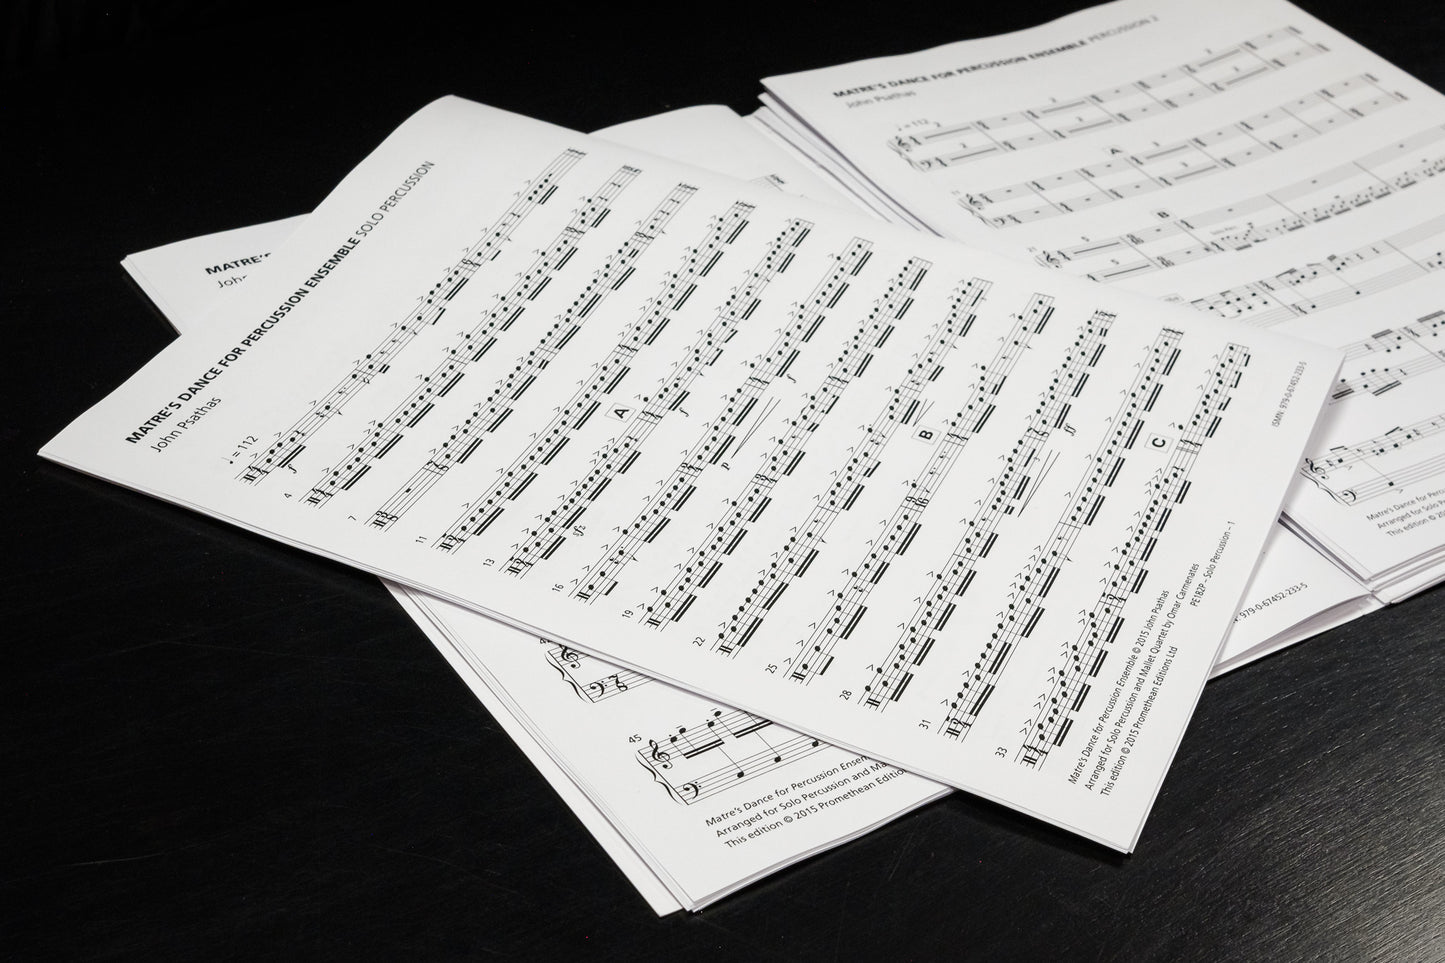 MATRE'S DANCE FOR PERCUSSION ENSEMBLE SOLO PERCUSSION
John Psathas
♩ = 112
f
4
7
11
A
13
sfz
f
16
p
f
19
22
25
B
28
31
ff
33
C
Matre's Dance for Percussion Ensemble © 2015 John Psathas
Arranged for Solo Percussion and Mallet Quartet by Omar Carmenates
This edition © 2015 Promethean Editions Ltd
PE182P – Solo Percussion – 1
ISMN: 979-0-67452-233-5
MATRE'S DANCE FOR PERCUSSION ENSEMBLE PERCUSSION 2
John Psathas
♩ = 112
2
2
3
2
2
2
3
2
A
3
3
B
5
5
Matre's Dance for
Arranged for Solo P
This edition © 20
979-0-67452-233-5
MATRE'S
45
Matre's Dance for Percussion Ensem
Arranged for Solo Percussion and Ma
This edition © 2015 Promethean Edition